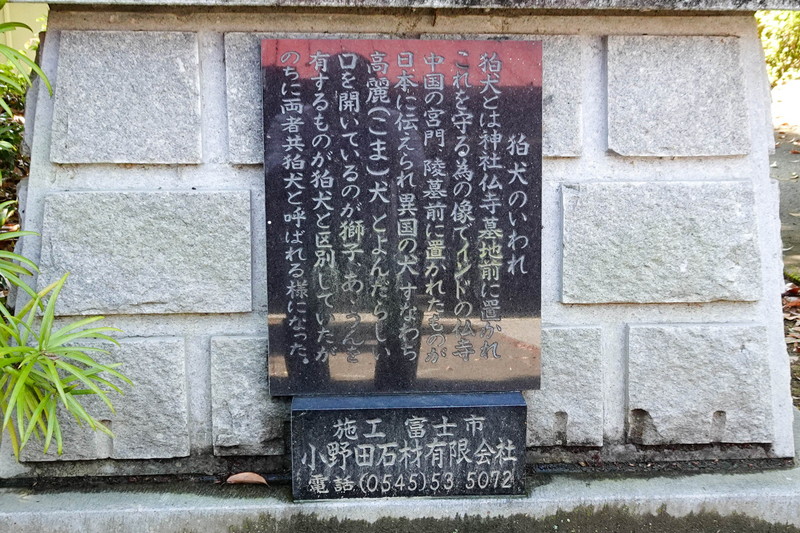 狛犬のいわれ
狛犬とは神社仏寺墓地前に置かれ
これを守る為の像でインドの仏寺
中国の宮門、陵墓前に置かれたものが
日本に伝えられ異国の犬すなわち
高麗(こま)犬とよんだらしい
口を開いているのが獅子、あ、うんと
有するものが狛犬と区別していたが
のちに両者共狛犬と呼ばれる様になった。
施工 富士市
小野田石材有限会社
電話(0545)53 5072